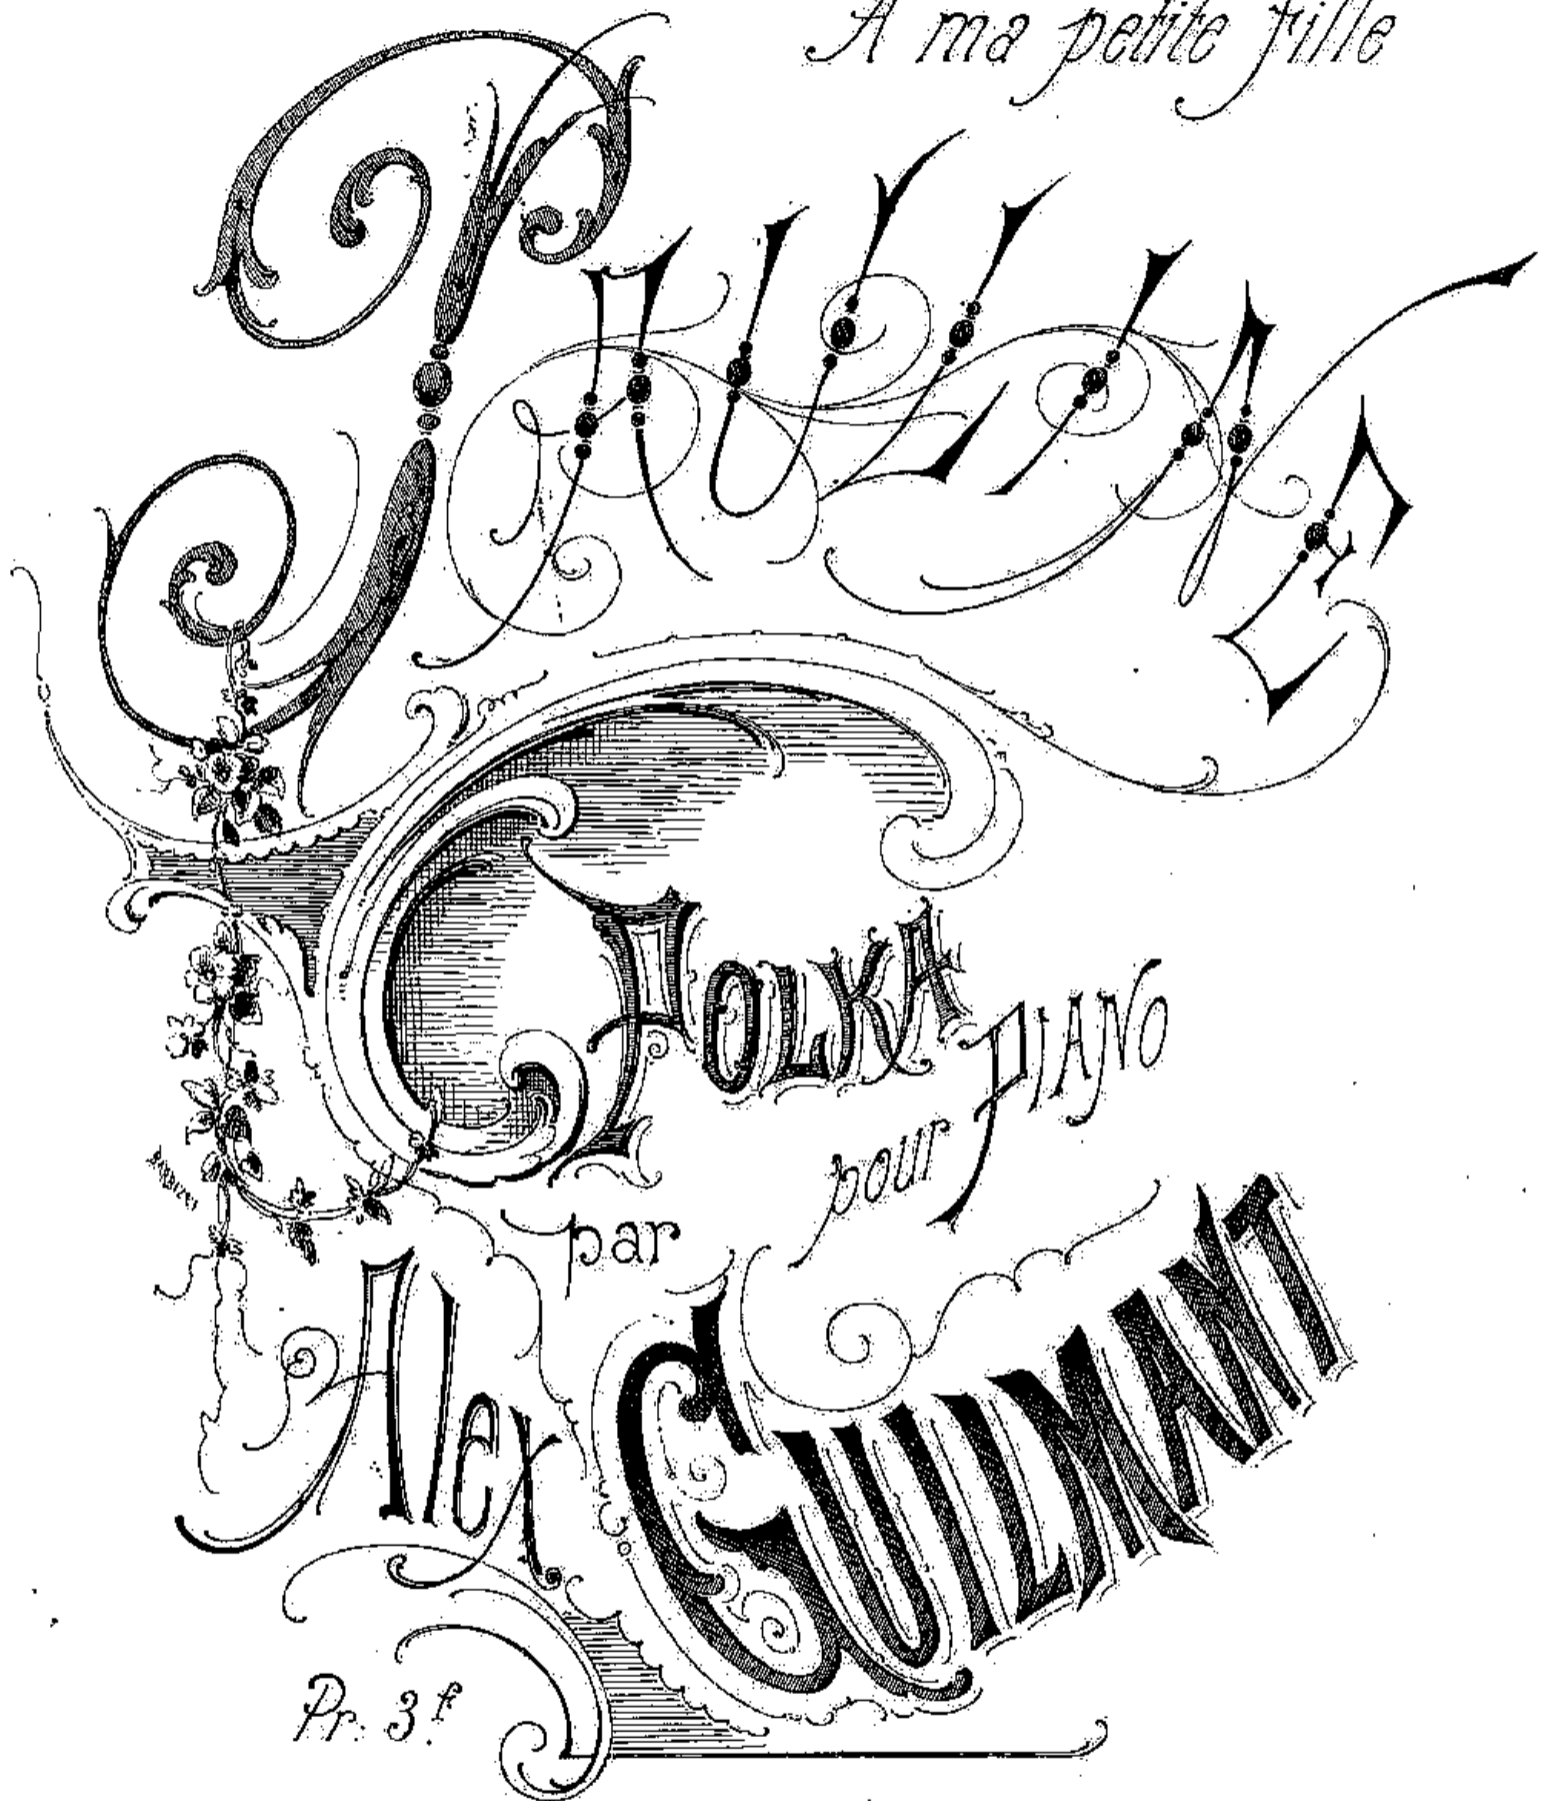 A ma petite fille
PAULINE
POLKA
pour PIANO
par
Alex. GUILMANT
Pr. 3.f